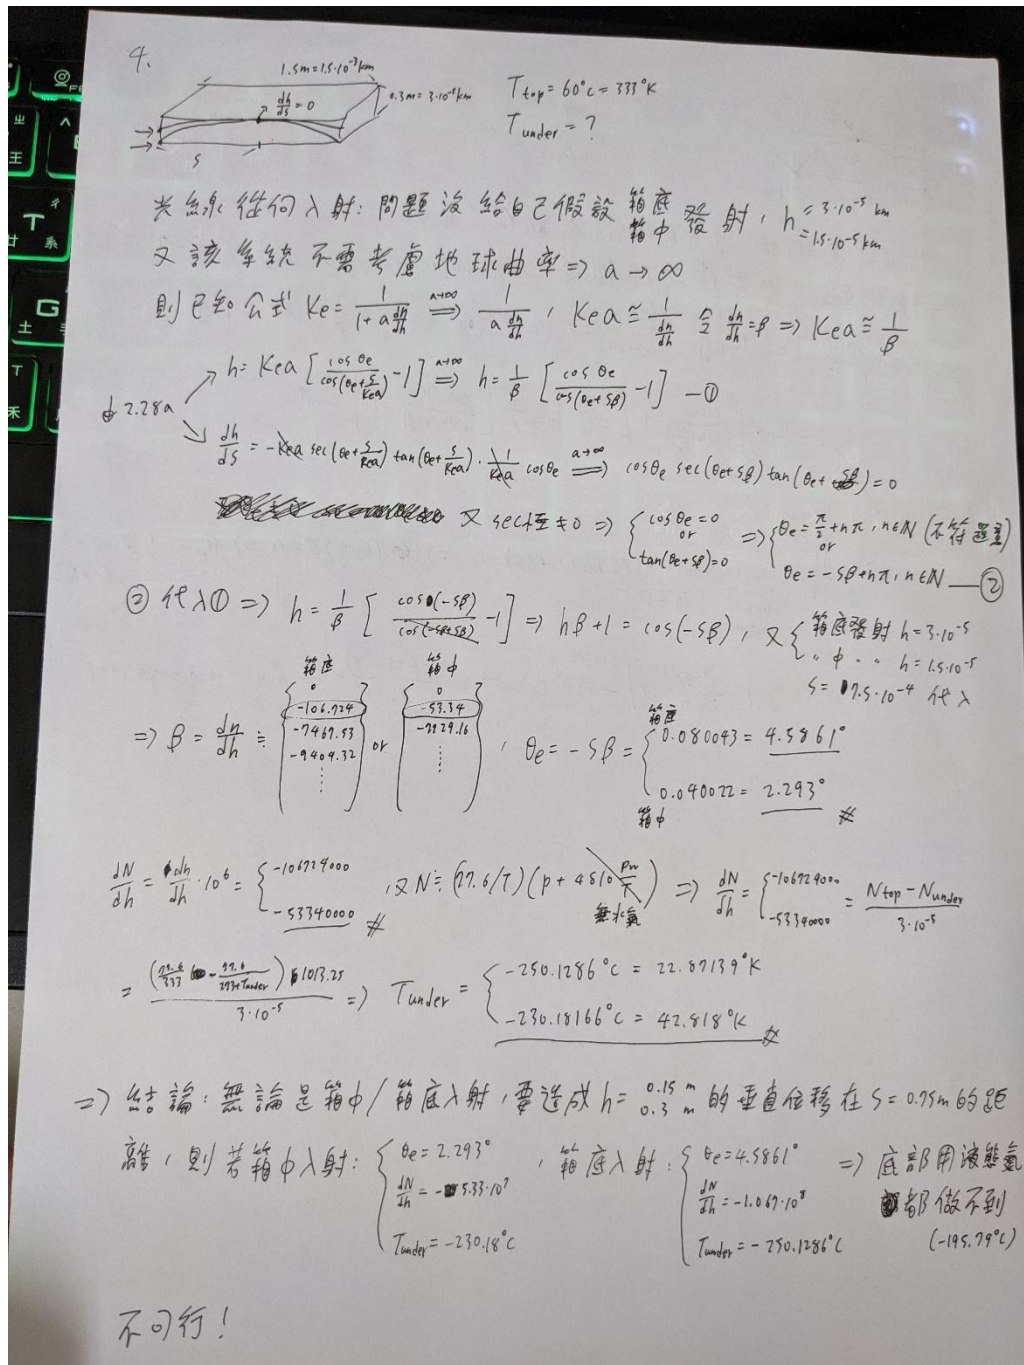 4.
1.5m=1.5·10⁻³km
0.3m=3·10⁻⁵km
dh/ds = 0
S
T top = 60°C = 333°K
T under = ?
光線從何入射: 問題沒給自己假設 箱底 箱中 發射, h = 3·10⁻⁵ km = 1.5·10⁻⁵ km
又該系統不需考慮地球曲率 => a → ∞
則已知公式 Ke = 1/(1+a dn/dh) =a→∞=> 1/(a dn/dh), Ke a ≅ 1/(dn/dh) 令 dn/dh = β => Ke a ≅ 1/β
由2.28a
h = Ke a [cos θe / cos(θe + s/Kea) - 1] =a→∞=> h = 1/β [cos θe / cos(θe+sβ) - 1] —①
dh/ds = -Kea sec(θe + s/Kea) tan(θe + s/Kea) · 1/Kea cosθe =a→∞=> cosθe sec(θe+sβ) tan(θe+sβ) = 0
又 sec恆≠0 => { cosθe = 0 or tan(θe+sβ)=0 => { θe = π/2 + nπ, n∈N (不符題意) or θe = -sβ+nπ, n∈N —②
②代入① => h = 1/β [cos(-sβ) / cos(-sβ+sβ) - 1] => hβ+1 = cos(-sβ), 又 { 箱底發射 h = 3·10⁻⁵
〃 中 〃 〃 h = 1.5·10⁻⁵
S = 7.5·10⁻⁴ 代入
箱底 箱中
=> β = dn/dh ≒ { 0 -106.724 -7467.53 -9404.32 ⋮ } or { 0 -53.34 -7929.16 ⋮ }, θe = -sβ = { 箱底 0.080043 = 4.5861°
0.040022 = 2.293° #
箱中
dN/dh = dn/dh · 10⁶ = { -106724000 -53340000 # , 又 N ≒ (77.6/T)(p + 4810 Pw/T) 無水氣 => dN/dh = { -106724000 -53340000 = (N top - N under) / 3·10⁻⁵
= (77.6/333 - 77.6/(273+Tunder)) 1013.25 / 3·10⁻⁵ => T under = { -250.1286°C = 22.87139°K
-230.18166°C = 42.818°K #
=> 結論: 無論是箱中/箱底入射, 要造成 h = 0.15 m 0.3 m 的垂直位移在 S = 0.75m 的距
離, 則若箱中入射: { θe = 2.293° dN/dh = -5.33·10⁷ Tunder = -230.18°C , 箱底入射: { θe = 4.5861° dN/dh = -1.067·10⁸ Tunder = -250.1286°C => 底部用液態氮
都做不到
(-195.79°C)
不可行!